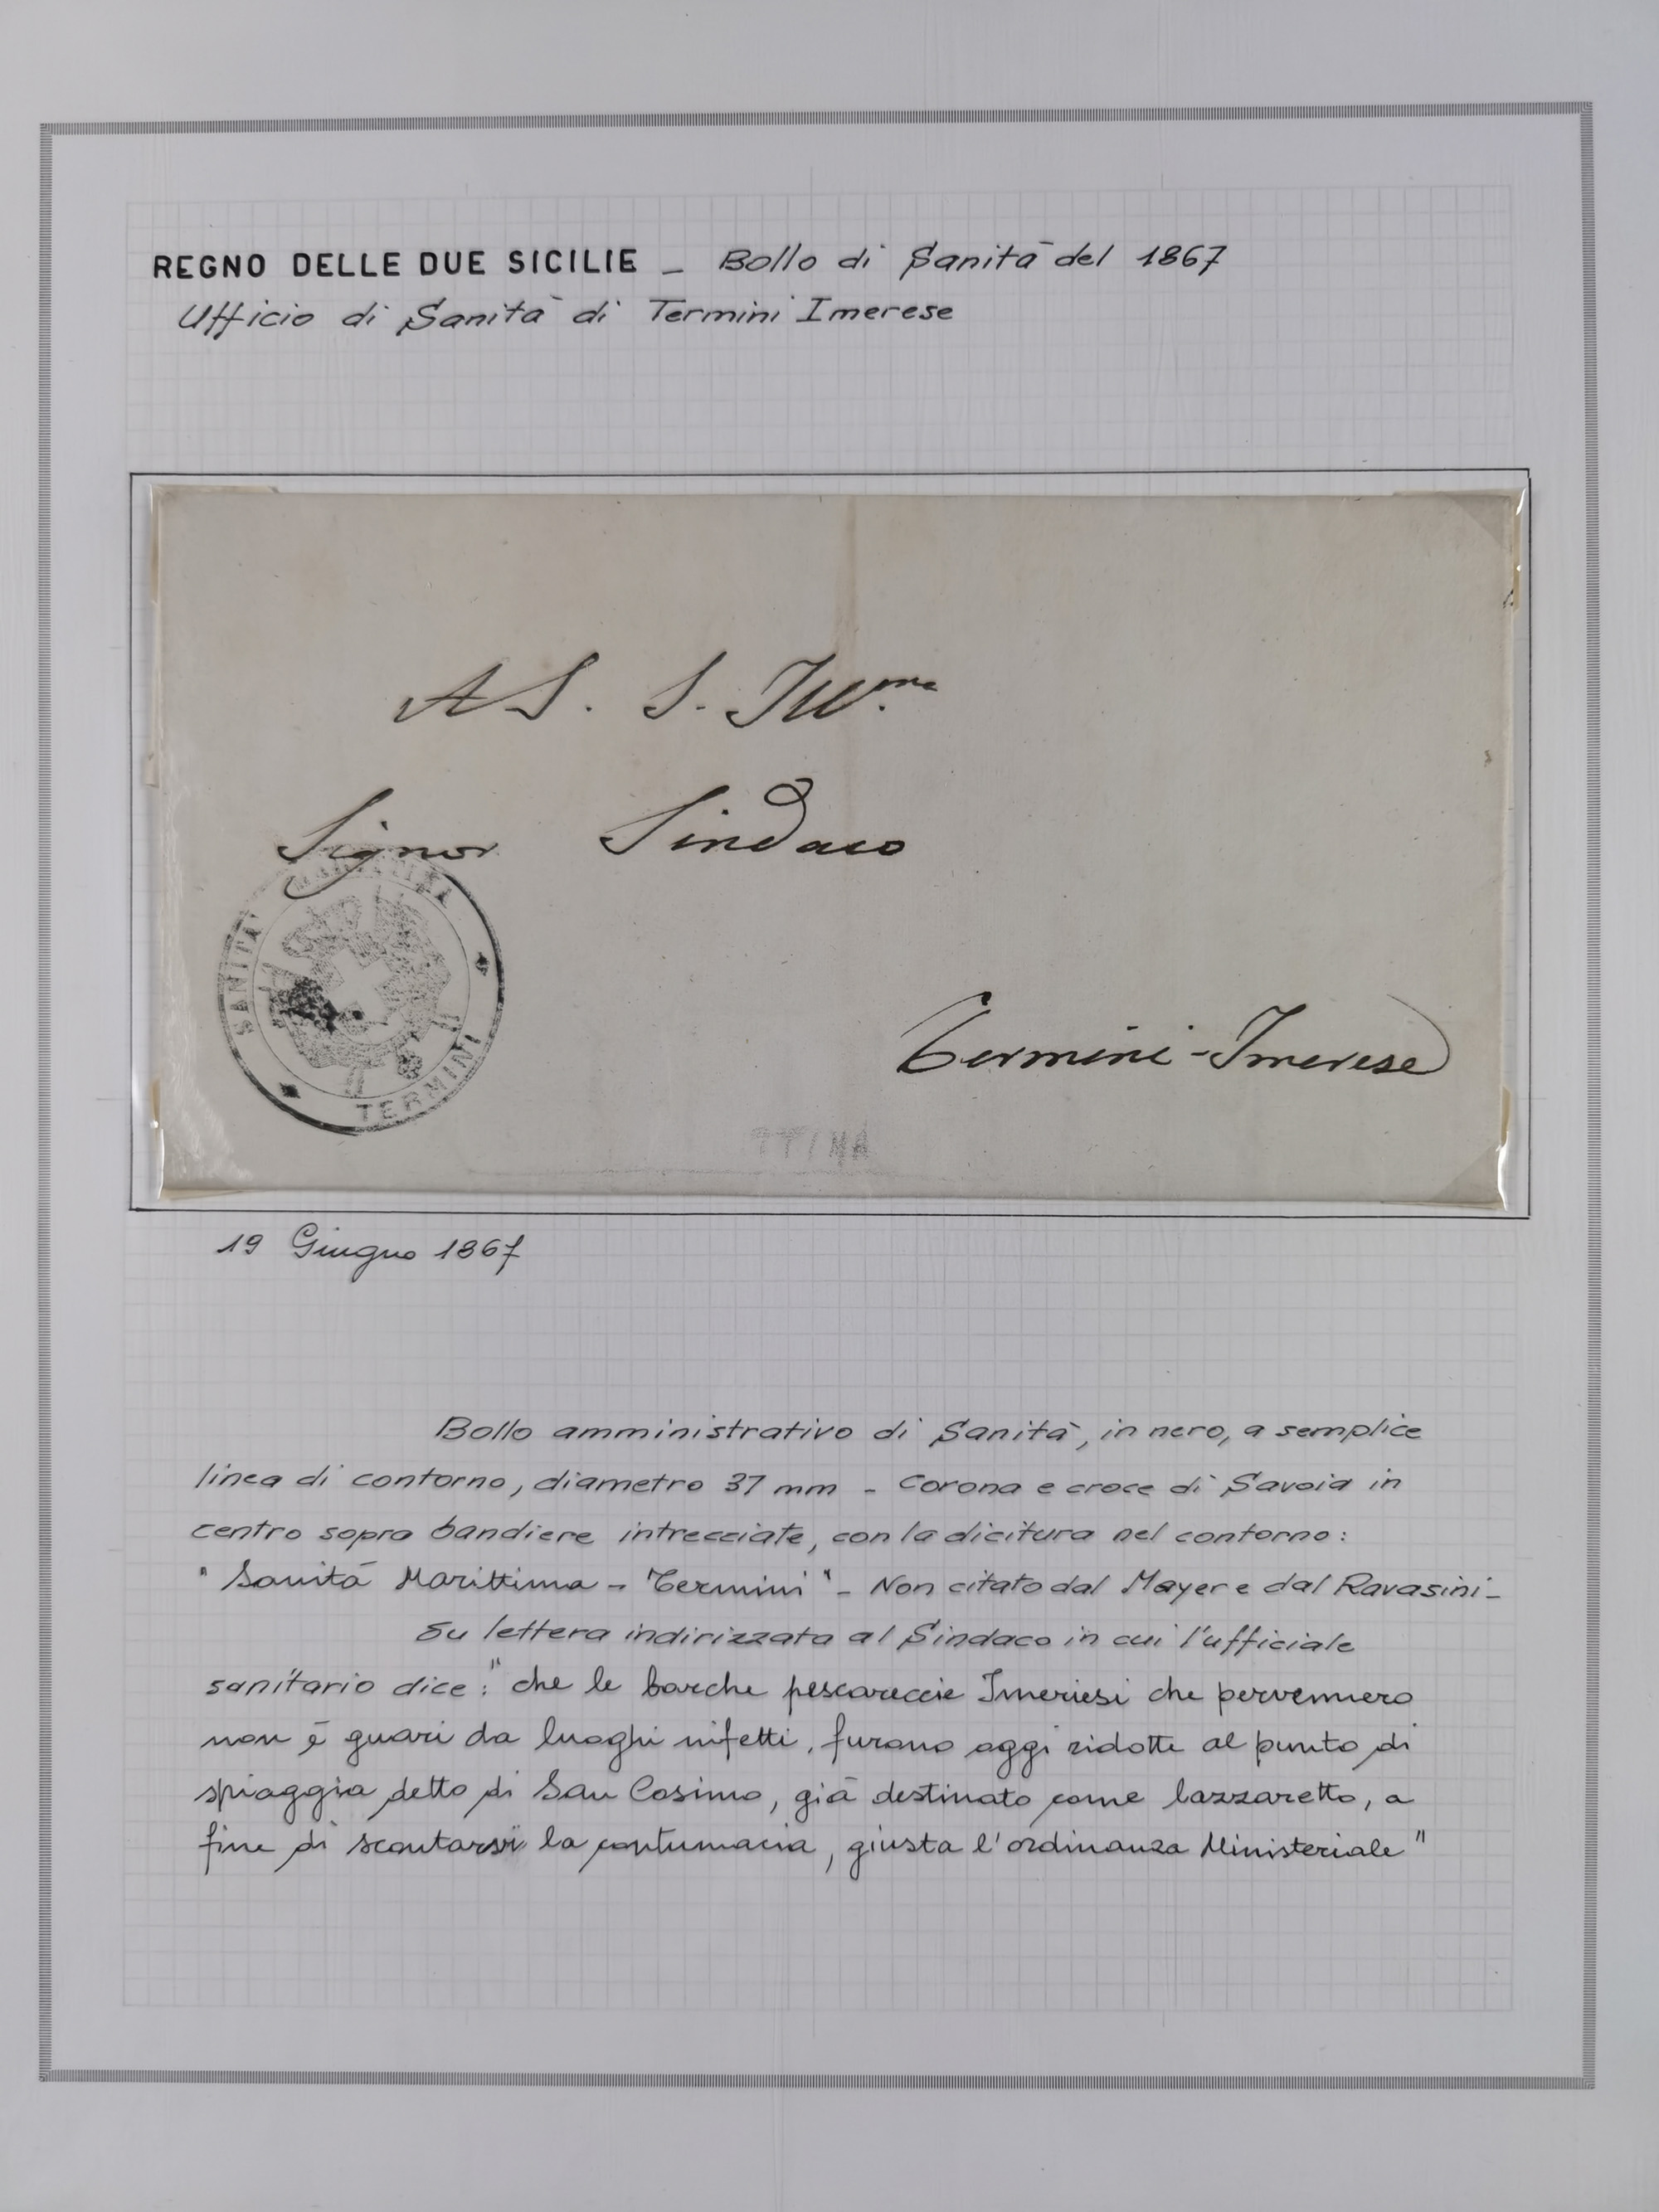 REGNO DELLE DUE SICILIE – Bollo di Sanità del 1867
Ufficio di Sanità di Termini Imerese
A S. S. Ill.ma
Signor Sindaco
SANITA' MARITTIMA
TERMINI
Termini-Imerese
19 Giugno 1867
Bollo amministrativo di Sanità, in nero, a semplice
linea di contorno, diametro 37 mm – Corona e croce di Savoia in
centro sopra bandiere intrecciate, con la dicitura nel contorno:
"Sanità Marittima – Termini" – Non citato dal Mayer e dal Ravasini –
Su lettera indirizzata al Sindaco in cui l'ufficiale
sanitario dice: "che le barche pescareccie Imeriesi che pervennero
non è guari da luoghi infetti, furono oggi ridotte al punto di
spiaggia detto di San Cosimo, già destinato come lazzaretto, a
fine di scontarsi la contumacia, giusta l'ordinanza Ministeriale"